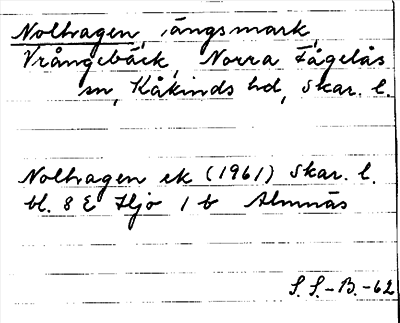 Nolhagen, ängsmark,
Vrångebäck, Norra Fågelås
sn, Kåkinds hd, Skar. l.
Nolhagen ek (1961) Skar. l.
bl. 8 E Hjo 1 b Almnäs
S. S.-B.-62